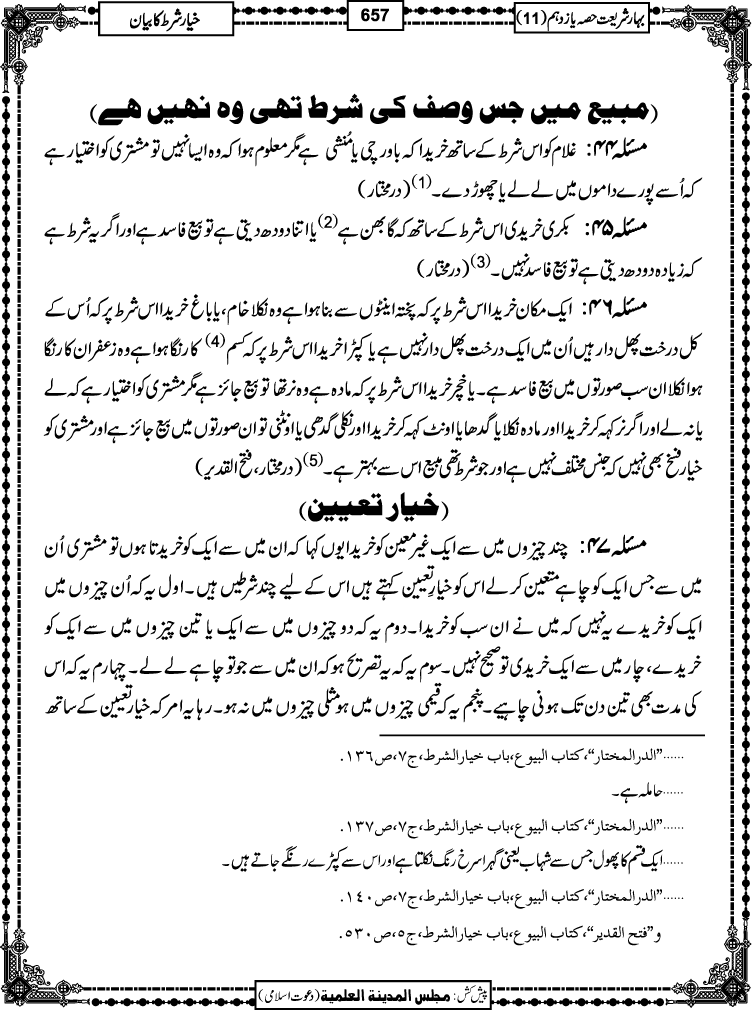 بہار شریعت حصہ یازدہم (11)
657
خیار شرط کا بیان
(مبیع میں جس وصف کی شرط تھی وہ نہیں ہے)
مسئلہ ۴۴: غلام کو اس شرط کے ساتھ خریدا کہ باورچی یا مُنشی ہے مگر معلوم ہوا کہ وہ ایسا نہیں تو مشتری کو اختیار ہے
کہ اُسے پورے داموں میں لے لے یا چھوڑ دے۔(1) (درمختار)
مسئلہ ۴۵: بکری خریدی اس شرط کے ساتھ کہ گابھن ہے(2) یا اتنا دودھ دیتی ہے تو بیع فاسد ہے اور اگر یہ شرط ہے
کہ زیادہ دودھ دیتی ہے تو بیع فاسد نہیں۔(3) (درمختار)
مسئلہ ۴۶: ایک مکان خریدا اس شرط پر کہ پختہ اینٹوں سے بنا ہوا ہے وہ نکلا خام، یا باغ خریدا اس شرط پر کہ اُس کے
کل درخت پھل دار ہیں اُن میں ایک درخت پھل دار نہیں ہے یا کپڑا خریدا اس شرط پر کہ کسم(4) کا رنگا ہوا ہے وہ زعفران کا رنگا
ہوا نکلا ان سب صورتوں میں بیع فاسد ہے۔ یا خچر خریدا اس شرط پر کہ مادہ ہے وہ نر تھا تو بیع جائز ہے مگر مشتری کو اختیار ہے کہ لے
یا نہ لے اور اگر نر کہہ کر خریدا اور مادہ نکلا یا گدھا یا اونٹ کہہ کر خریدا اور نکلی گدھی یا اونٹنی تو ان صورتوں میں بیع جائز ہے اور مشتری کو
خیار فسخ بھی نہیں کہ جنس مختلف نہیں ہے اور جو شرط تھی مبیع اس سے بہتر ہے۔(5) (درمختار، فتح القدیر)
(خیار تعیین)
مسئلہ ۴۷: چند چیزوں میں سے ایک غیر معین کو خریدا یوں کہا کہ ان میں سے ایک کو خریدتا ہوں تو مشتری اُن
میں سے جس ایک کو چاہے متعین کر لے اس کو خیارِ تعیین کہتے ہیں اس کے لیے چند شرطیں ہیں۔ اول یہ کہ اُن چیزوں میں
ایک کو خریدے یہ نہیں کہ میں نے ان سب کو خریدا۔ دوم یہ کہ دو چیزوں میں سے ایک یا تین چیزوں میں سے ایک کو
خریدے، چار میں سے ایک خریدی تو صحیح نہیں۔ سوم یہ کہ یہ تصریح ہو کہ ان میں سے جو تو چاہے لے لے۔ چہارم یہ کہ اس
کی مدت بھی تین دن تک ہونی چاہیے۔ پنجم یہ کہ قیمی چیزوں میں ہو مثلی چیزوں میں نہ ہو۔ رہا یہ امر کہ خیار تعیین کے ساتھ
......”الدرالمختار“، کتاب البیوع، باب خیارالشرط، ج۷، ص۱۳۶.
......حاملہ ہے۔
......”الدرالمختار“، کتاب البیوع، باب خیارالشرط، ج۷، ص۱۳۷.
......ایک قسم کا پھول جس سے شہاب یعنی گہرا سرخ رنگ نکلتا ہے اور اس سے کپڑے رنگے جاتے ہیں۔
......”الدرالمختار“، کتاب البیوع، باب خیارالشرط، ج۷، ص۱۴۰.
و”فتح القدیر“، کتاب البیوع، باب خیارالشرط، ج۵، ص۵۳۰.
پیش کش: مجلس المدینة العلمیة (دعوت اسلامی)